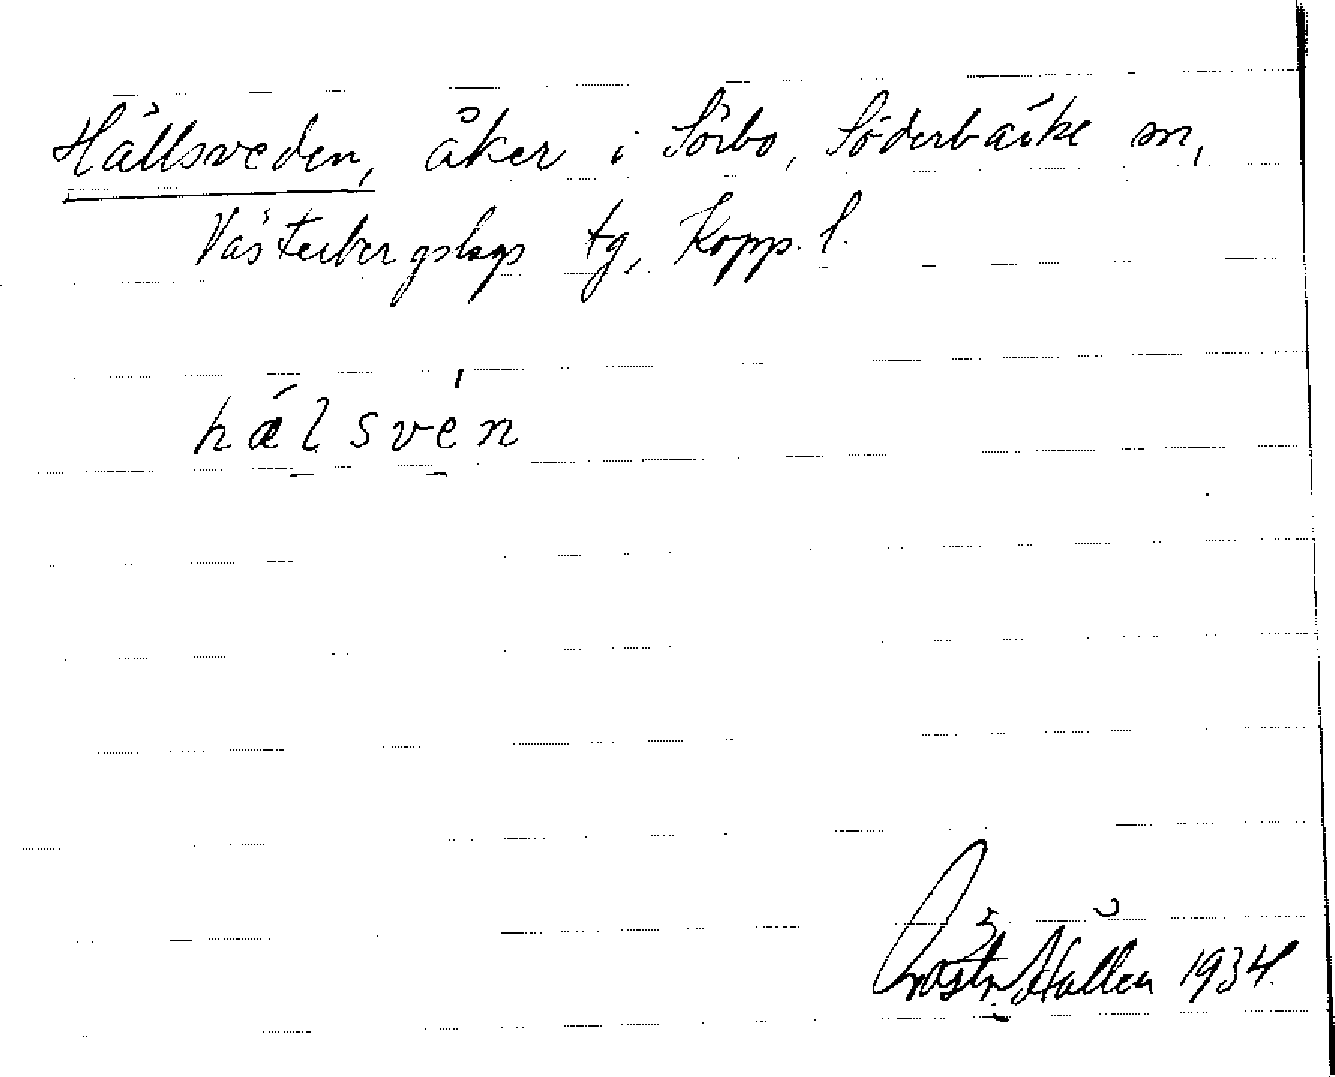 Hällsveden, åker i Sörbo, Söderbärke sn,
Västerbergslags tg, Kopp. l.
hälsvén
1934